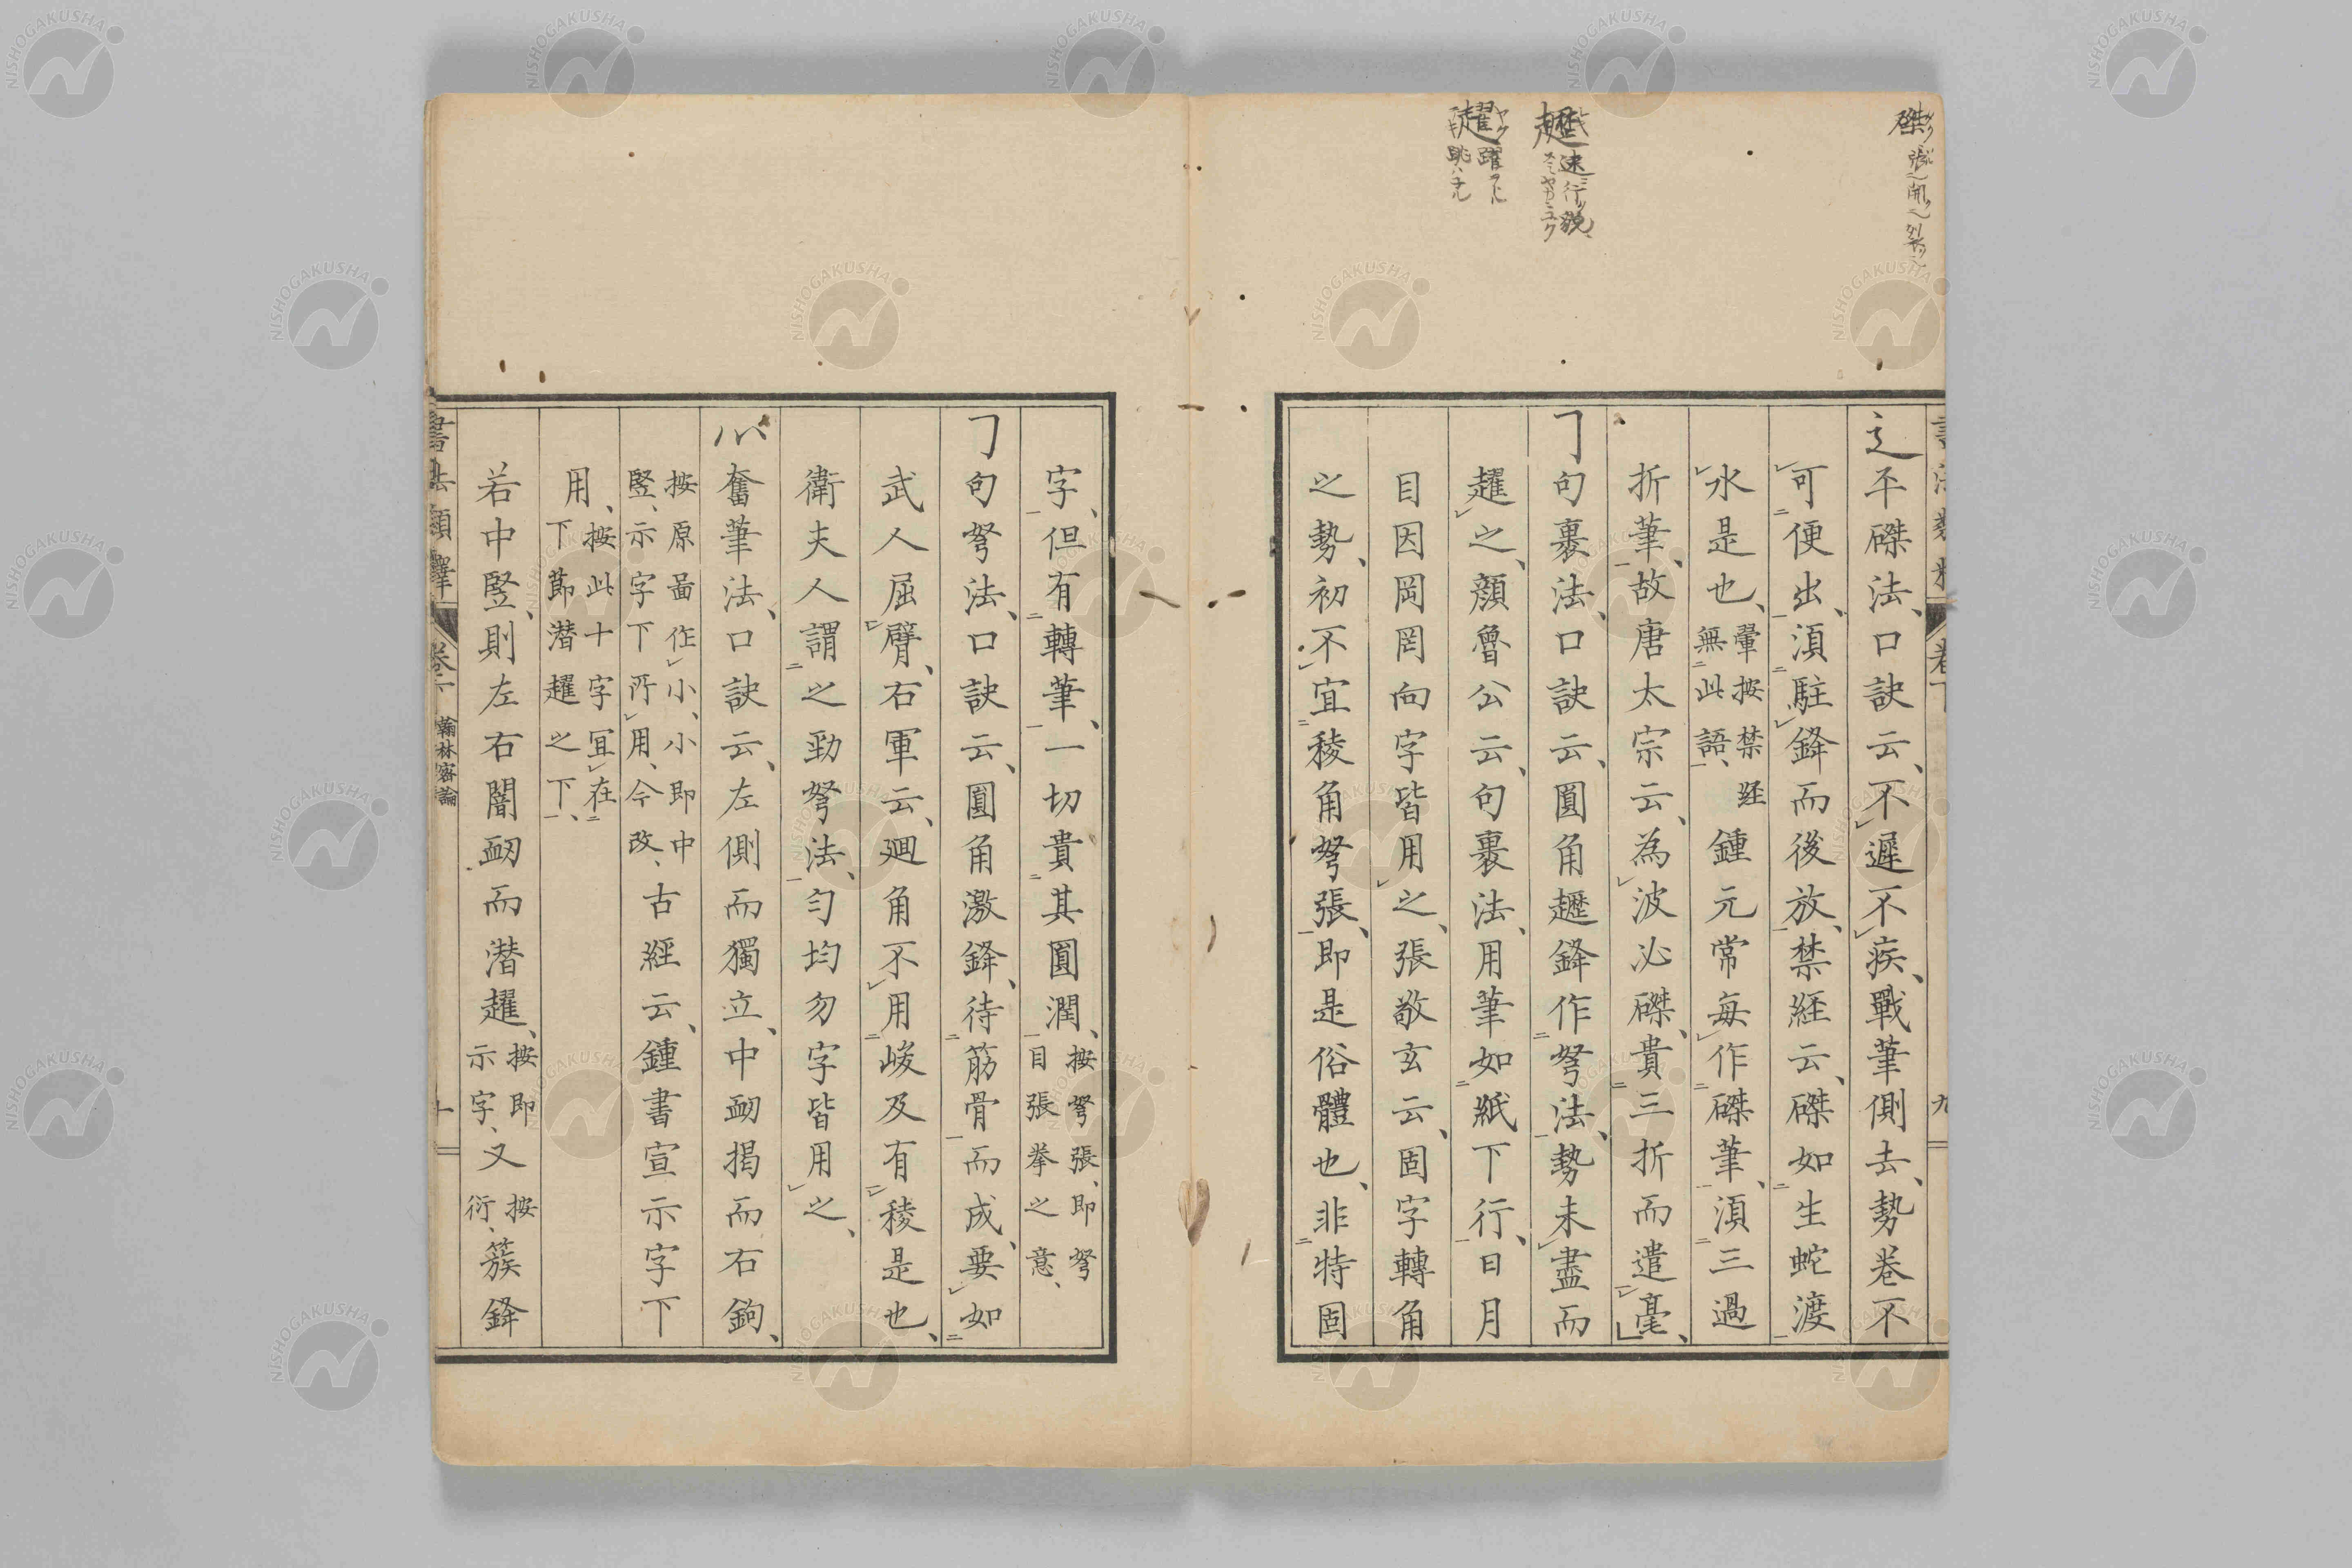 辶平磔法、口訣云、不遲不疾、戰筆側去、勢卷不
可便出、湏駐鋒而後放、禁経云、磔如生蛇渡
水是也、暈按禁経無此語、鍾元常每作磔筆、湏三過
折筆、故唐太宗云、為波必磔、貴三折而遣毫、
𠃌句裹法、口訣云、圓角趯鋒作弩法、勢未盡而
趯之、顔魯公云、句裹法、用筆如紙下行、日月
目因岡罔向字皆用之、張敬玄云、固字轉角
之勢、初不宜稜角弩張、即是俗體也、非特固
字、但有轉筆、一切貴其圓潤、按弩張、即弩目張拳之意、
𠃌句弩法、口訣云、圓角激鋒、待筋骨而成、要如
武人屈臂、右軍云、廻角不用峻及有稜是也、
衛夫人謂之勁弩法、勻均勿字皆用之、
奮筆法、口訣云、左側而獨立、中衂揭而右鉤、
按原啚作小、小即中竪、示字下所用、今改、古経云、鍾書宣示字下
用、按此十字冝在下節潜趯之下、
若中竪、則左右闇衂而潜趯、按即示字、又按衍、簇鋒
翰林密論
NISHOGAKUSHA